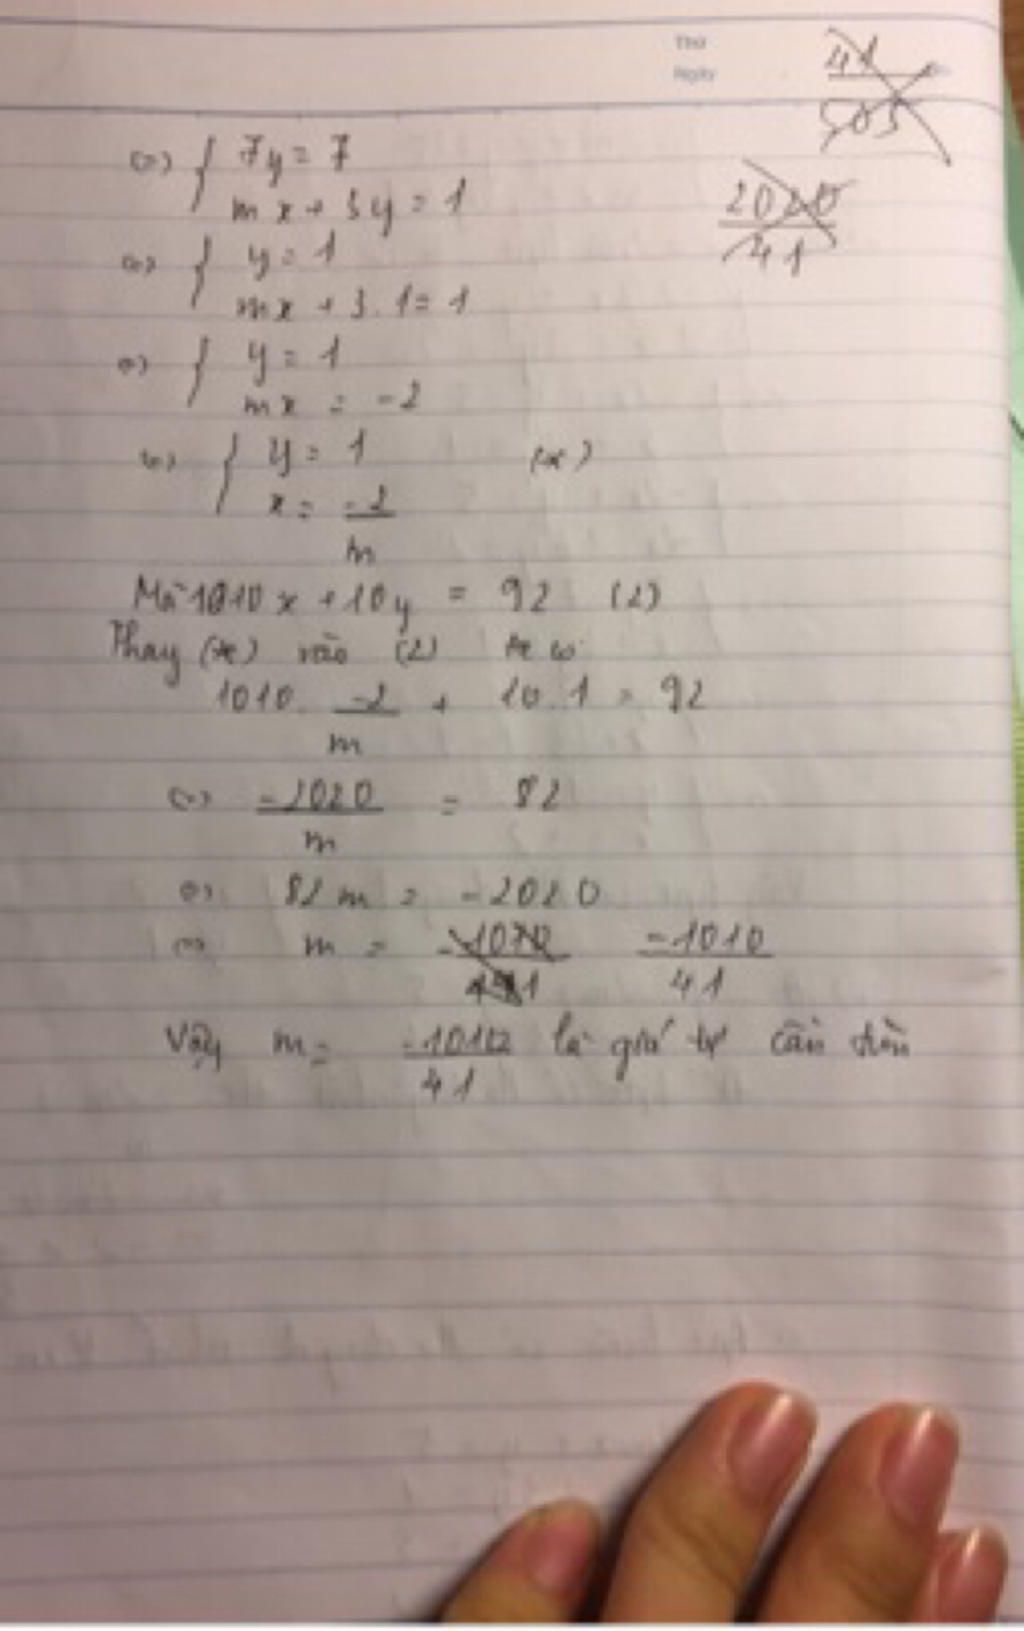 Thứ
Ngày
41
505
2020
41
<=> { 7y = 7
mx + 3y = 1
<=> { y = 1
mx + 3.1 = 1
<=> { y = 1
mx = -2
<=> { y = 1 (*)
x = -2
m
Mà 1010x + 10y = 92 (2)
Thay (*) vào (2) ta có
1010. -2 + 10.1 = 92
m
<=> -2020 = 82
m
<=> 82m = -2020
<=> m = -1010
41
Vậy m = -1010 là giá trị cần tìm
41